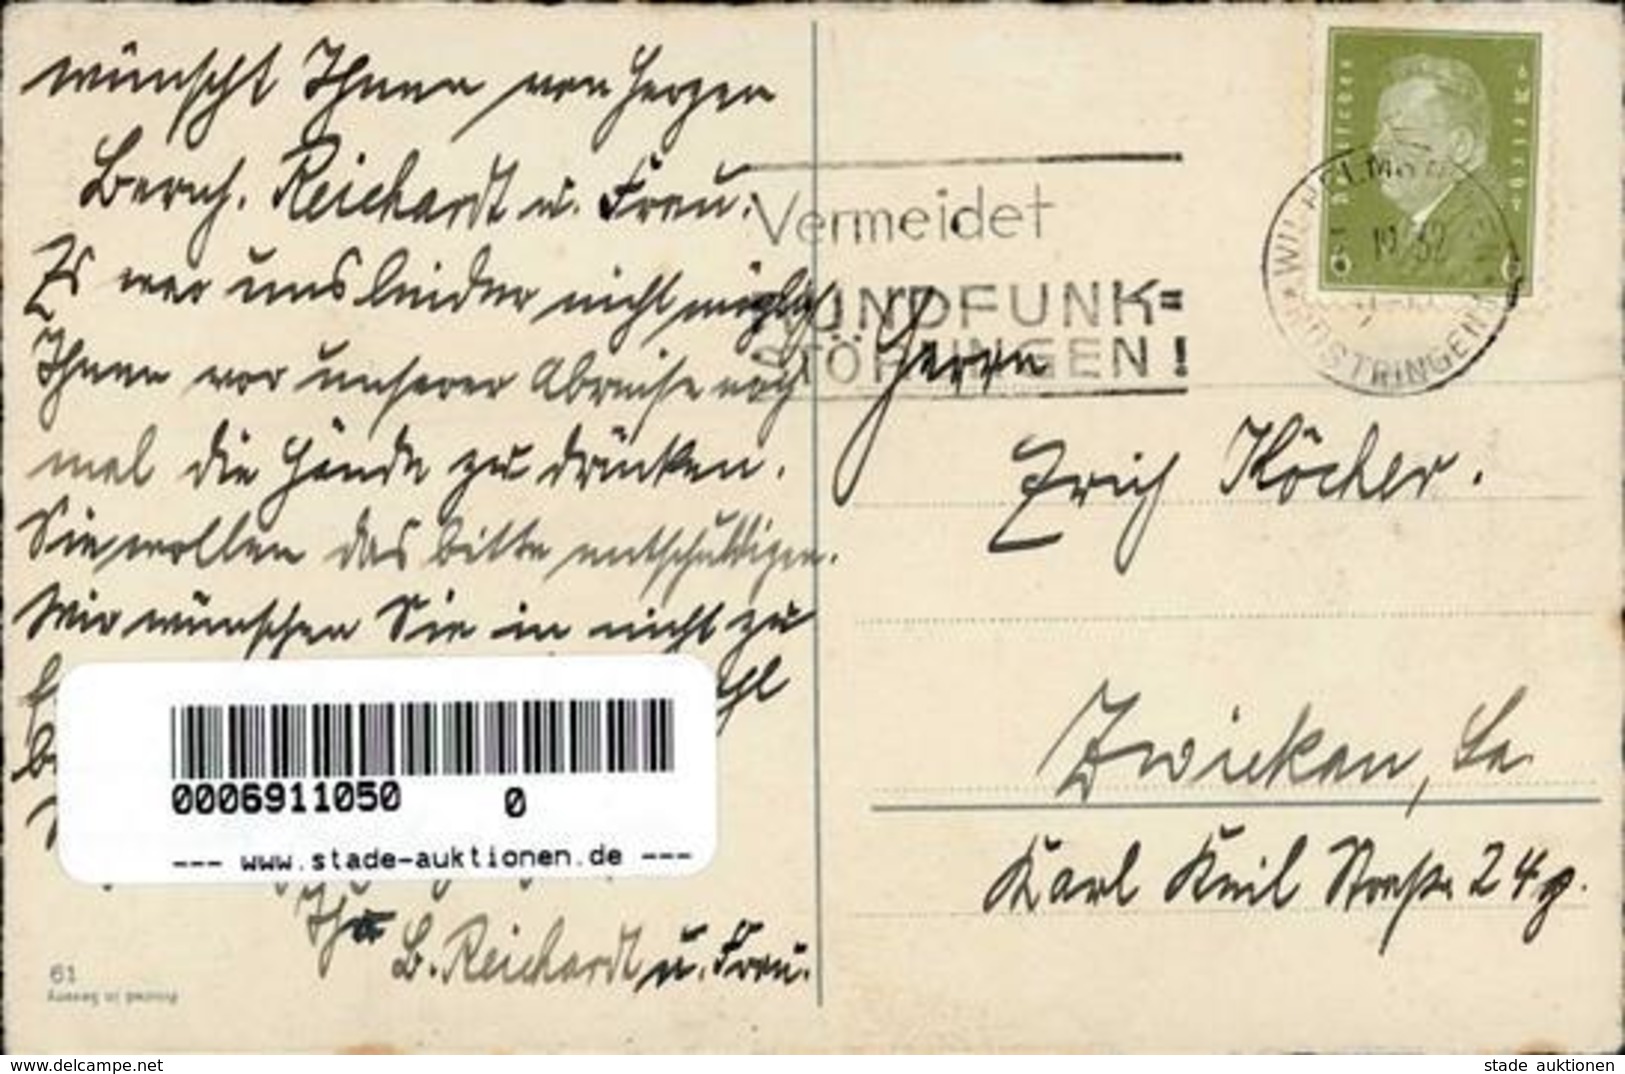 wünscht Ihnen von Herzen
Bernh. Reichardt u. Frau.
Es war uns leider nicht möglich
Ihnen vor unserer Abreise noch
mal die Hände zu drücken.
Sie wollen das bitte entschuldigen.
Wir wünschen Sie in nicht zu
B. Reichardt u. Frau.
61
Printed in Saxony
Vermeidet
RUNDFUNK=
STÖRUNGEN!
Deutsches Reich
WILHELMSHAVEN
RÜSTRINGEN
32
6 6
Herrn
Erich Köcher.
Zwickau, Sa.
Karl Keil Straße 24
0006911050 0
--- www.stade-auktionen.de ---
www.delcampe.net
stade auktionen